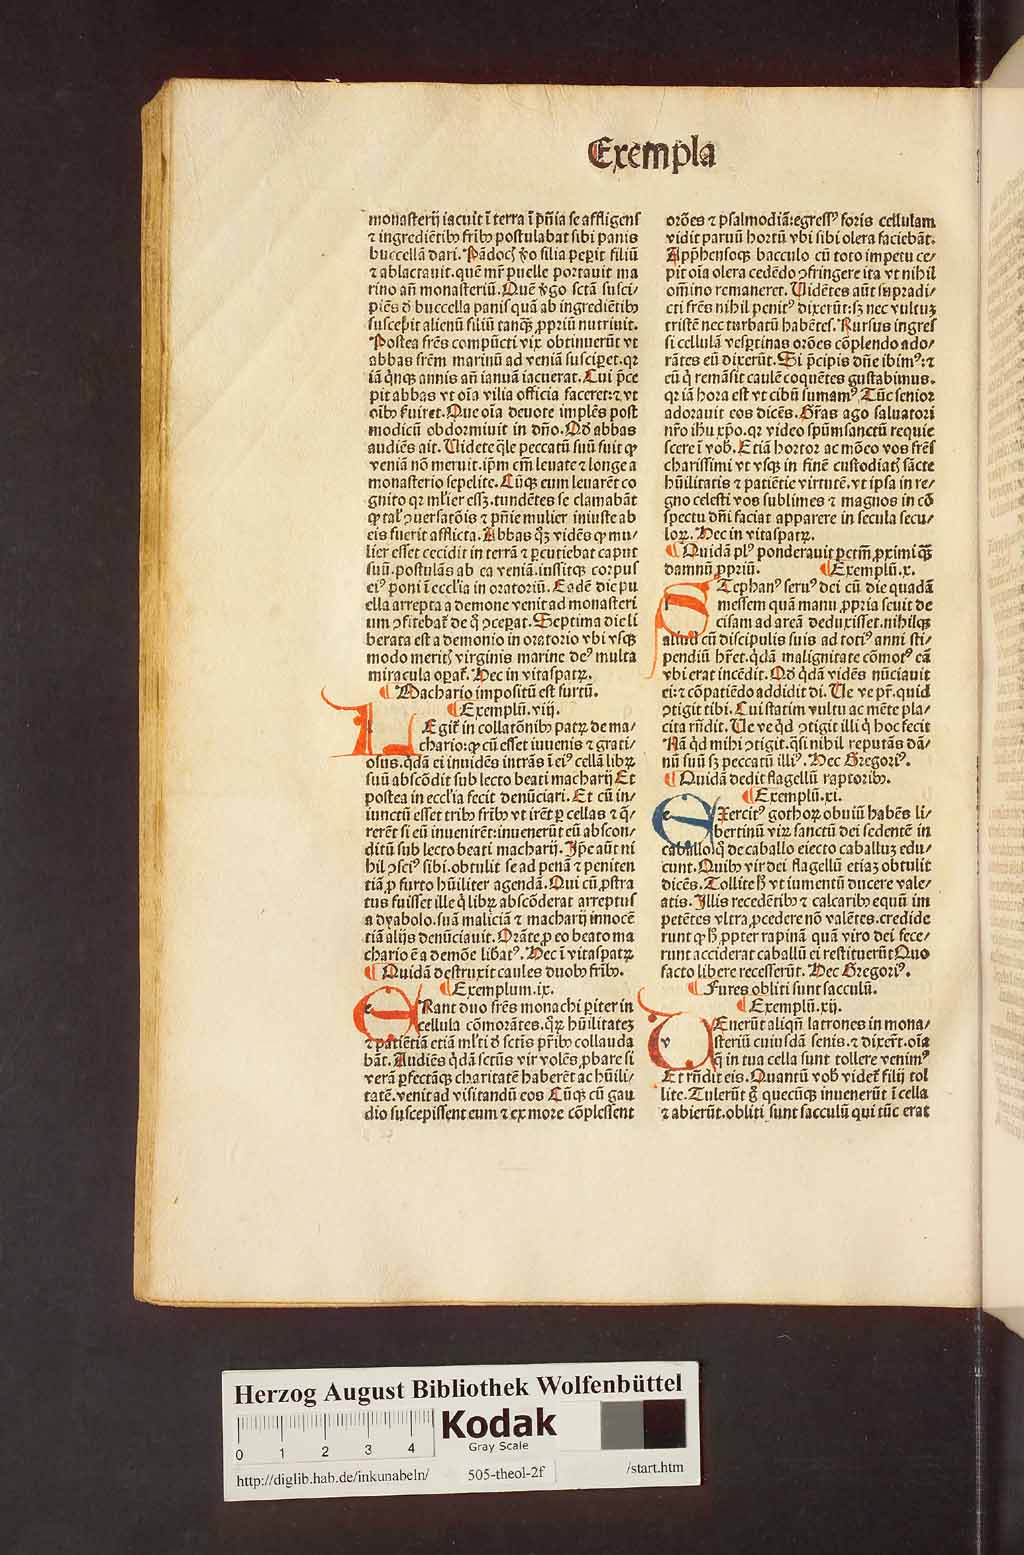 Exempla
monasterij iacuit ī terra ī pn̄ia se affligens
⁊ ingrediētibꝰ frībꝰ postulabat sibi panis
buccellā dari. Pādochꝭ v̄o filia peperit filiū
⁊ ablactauit. quē mr̄ puelle portauit ma
rino an̄ monasteriū. Quē v̄go sctā susci⸗
piēs d̄ buccella panis quā ab ingrediētibꝰ
susceꝑit alienū filiū tanqꝫ ꝓpriū nutriuit.
Postea frēs compūcti vix obtinuerūt vt
abbas frēm marinū ad veniā susciꝑet. qꝛ
iā qͥnqꝫ annis an̄ ianuā iacuerat. Cui p̄ce
pit abbas vt oīa vilia officia faceret: ⁊ vt
oībꝰ ẜuiret. Que oīa deuote implēs post
modicū obdormiuit in dn̄o. Qd̄ abbas
audiēs ait. Uidete q̄le peccatū suū fuit ꝙ
veniā nō meruit. ip̄m tm̄ leuate ⁊ longe a
monasterio sepelite. Cūqꝫ eum leuarēt co
gnito qꝛ ml̓ier essꝫ. tundētes se clamabāt
ꝙ tal̓ ꝯuersatōis ⁊ pn̄ie mulier iniuste ab
eis fuerit afflicta. Abbas qͦꝫ vidēs ꝙ mu⸗
lier esset cecidit in terrā ⁊ ꝑcutiebat caput
suū. postulās ab ea veniā. iussitqꝫ corpus
eiꝰ poni ī eccl̓ia in oratoriū. Eadē die pu
ella arrepta a demone venit ad monasteri
um ꝯfitebat̄ de qͦ ꝯceꝑat. Septima die li
berata est a demonio in oratorio vbi vsqꝫ
modo meritꝭ virginis marine deꝰ multa
miracula oꝑat̄. Hec in vitaspatꝝ.
¶ Machario impositū est furtū.
¶ Exemplū. viij.
LEgit̄ in collatōnibꝰ patꝝ de ma⸗
chario: ꝙ cū esset iuuenis ⁊ grati⸗
osus. qͥdā ei inuidēs intrās ī eiꝰ cellā libꝝ
suū abscōdit sub lecto beati macharij Et
postea in eccl̓ia fecit denūciari. Et cū in⸗
iunctū esset tribꝰ frībꝰ vt irēt ꝑ cellas ⁊ q̄⸗
rerēt si eū inuenirēt: inuenerūt eū abscon⸗
ditū sub lecto beati macharij. Ip̄e aūt ni
hil ꝯsciꝰ sibi. obtulit se ad penā ⁊ peniten
tiā ꝑ furto hūiliter agendā. Qui cū ꝓstra
tus fuisset ille qͥ libꝝ abscōderat arreptus
a dyabolo. suā maliciā ⁊ macharij innocē
tiā alijs denūciauit. Orāte ꝓ eo beato ma
chario ē a demōe lib̓atꝰ. Hec ī vitaspatꝝ
¶ Quidā destruxit caules duobꝰ frībꝰ.
¶ Exemplum. ix.
ERant duo frēs monachi ꝑiter in
cellula cōmorātes. qͦꝝ hūilitateꝫ
⁊ patiētiā etiā ml̓ti d̄ sctīs pr̄ibꝰ collauda
bāt. Audiēs qͥdā sctūs vir volēs ꝓbare si
verā ꝑfectāqꝫ charitatē haberēt ac hūili⸗
tatē. venit ad visitandū eos Cūqꝫ cū gau
dio suscepissent eum ⁊ ex more cōplessent
orōes ⁊ psalmodiā: egressꝰ foris cellulam
vidit paruū hortū vbi sibi olera faciebāt.
Apphensoqꝫ bacculo cū toto impetu ce⸗
pit oīa olera cedēdo ꝯfringere ita vt nihil
om̄ino remaneret. Uidētes aūt supradi⸗
cti frēs nihil penitꝰ dixerūt: sꝫ nec vultuꝫ
tristē nec turbatū habētes. Rursus ingres
si cellulā vesꝑtinas orōes cōplendo ado⸗
rātes eū dixerūt. Si p̄cipis dn̄e ibimꝰ: ⁊
eū qͥ remāsit caulē coquētes gustabimus.
qꝛ iā hora est vt cibū sumamꝰ. Tūc senior
adorauit eos dicēs. Gr̄as ago saluatori
nr̄o ih̓u xp̄o. qꝛ video sp̄umsanctū requie
scere ī vob̓. Etiā hortor ac mōeo vos frēs
charissimi vt vsqꝫ in finē custodiatꝭ sācte
hūilitatis ⁊ patiētie virtutē. vt ipsa in re⸗
gno celesti vos sublimes ⁊ magnos in cō
spectu dn̄i faciat apparere in secula secu⸗
loꝝ. Hec in vitaspatꝝ.
¶ Quidā plꝰ ponderauit pctm̄ ꝓximi qꝫ
damnū ꝓpriū. ¶ Exemplū. x.
STephanꝰ seruꝰ dei cū die quadā
messem quā manu ꝓpria seuit de
cisam ad areā deduxisset. nihilqꝫ
aliud cū discipulis suis ad totiꝰ anni sti⸗
pendiū hr̄et. qͥdā malignitate cōmotꝰ eā
vbi erat incēdit. Qd̄ qͥdā vidēs nūciauit
ei: ⁊ cōpatiēdo addidit di. Ue ve pr̄. quid
ꝯtigit tibi. Cui statim vultu ac mēte pla⸗
cita rn̄dit. Ue ve qͥd ꝯtigit illi qͥ hoc fecit
Nā qͥd mihi ꝯtigit. qͣsi nihil reputās dā⸗
nū suū sꝫ peccatū illiꝰ. Hec Gregoriꝰ.
¶ Quidā dedit flagellū raptoribꝰ.
¶ Exemplū. xi.
EXercitꝰ gothoꝝ obuiū habēs li⸗
bertinū virꝝ sanctū dei sedentē in
caballo. qͥ de caballo eiecto caballuꝫ edu⸗
cunt. Quibꝰ vir dei flagellū etiaꝫ obtulit
dicēs. Tollite hͦ vt iumentū ducere vale⸗
atis. Illis recedētibꝰ ⁊ calcaribꝰ equū im
petētes vltra ꝓcedere nō valētes. credide
runt ꝙ hͦ ꝓpter rapinā quā viro dei fece⸗
runt acciderat caballū ei restituerūt Quo
facto libere recesserūt. Hec Gregoriꝰ.
¶ Fures obliti sunt sacculū.
¶ Exemplū. xij.
UEnerūt aliqn̄ latrones in mona⸗
steriū cuiusdā senis. ⁊ dixer̄t. oīa
q̄ in tua cella sunt tollere venimꝰ
Et rn̄dit eis. Quantū vob̓ videt̄ filij tol
lite. Tulerūt gͦ quecūqꝫ inuenerūt ī cella
⁊ abierūt. obliti sunt sacculū qui tūc erat
Herzog August Bibliothek Wolfenbüttel
0 1 2 3 4
Kodak
Gray Scale
http://diglib.hab.de/inkunabeln/ 505-theol-2f /start.htm